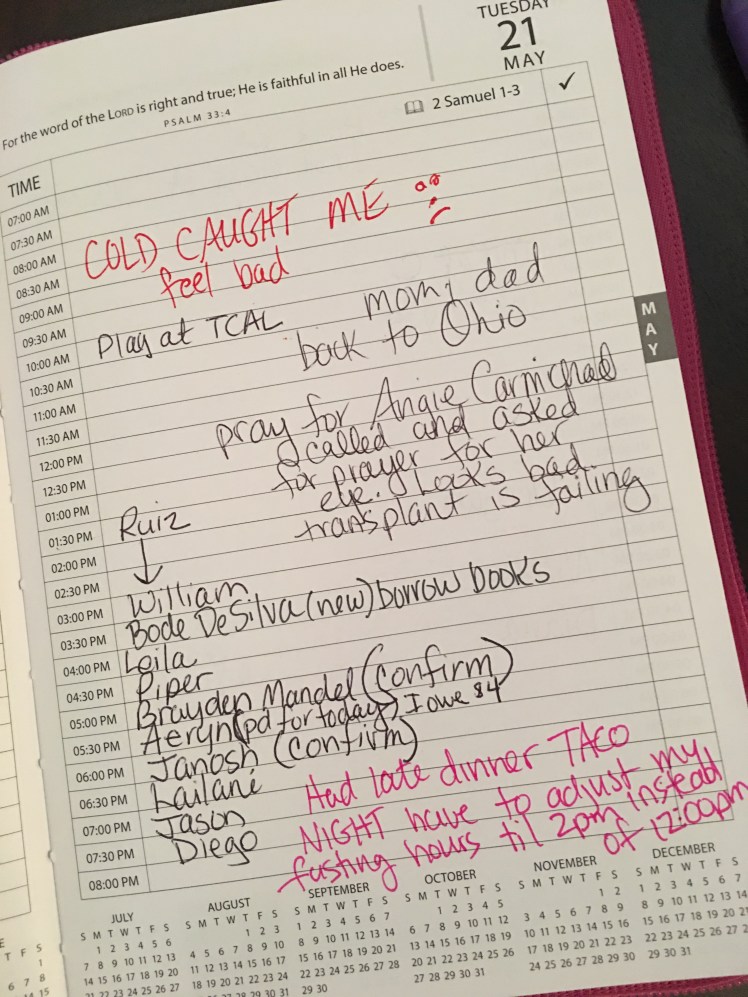 TUESDAY
21
MAY
For the word of the LORD is right and true; He is faithful in all He does.
PSALM 33:4
2 Samuel 1-3
✓
TIME
07:00 AM
07:30 AM
08:00 AM
COLD CAUGHT ME
08:30 AM
feel bad
09:00 AM
mom, dad
09:30 AM
Play at TCAL
back to Ohio
10:00 AM
MAY
10:30 AM
11:00 AM
pray for Angie Carmichael
11:30 AM
called and asked
12:00 PM
for prayer for her
12:30 PM
eye. Looks bad.
01:00 PM
transplant is failing
Ruiz
01:30 PM
02:00 PM
02:30 PM
William
03:00 PM
Bode DeSilva (new) borrow books
03:30 PM
Leila
04:00 PM
Piper
04:30 PM
Brayden Mandel (confirm)
05:00 PM
Aeryn (pd for today) I owe $4
05:30 PM
Janosh (confirm)
06:00 PM
Kailani
06:30 PM
Jason
07:00 PM
Diego
07:30 PM
08:00 PM
Had late dinner TACO
NIGHT have to adjust my
fasting hours til 2pm instead
of 12:00pm
JULY
S M T W T F S
1 2 3 4 5 6
7 8 9 10 11 12 13
14 15 16 17 18 19 20
21 22 23 24 25 26 27
AUGUST
S M T W T F S
1 2 3
4 5 6 7 8 9 10
11 12 13 14 15 16 17
18 19 20 21 22 23 24
25 26 27 28 29 30 31
SEPTEMBER
S M T W T F S
1 2 3 4 5 6 7
8 9 10 11 12 13 14
15 16 17 18 19 20 21
22 23 24 25 26 27 28
29 30
OCTOBER
S M T W T F S
1 2 3 4 5
6 7 8 9 10 11 12
13 14 15 16 17 18 19
20 21 22 23 24 25 26
27 28 29 30 31
NOVEMBER
S M T W T F S
1 2
3 4 5 6 7 8 9
10 11 12 13 14 15 16
17 18 19 20 21 22 23
24 25 26 27 28 29 30
DECEMBER
S M T W T F S
1 2 3 4 5 6 7
8 9 10 11 12 13 14
15 16 17 18 19 20 21
22 23 24 25 26 27
29 30 31